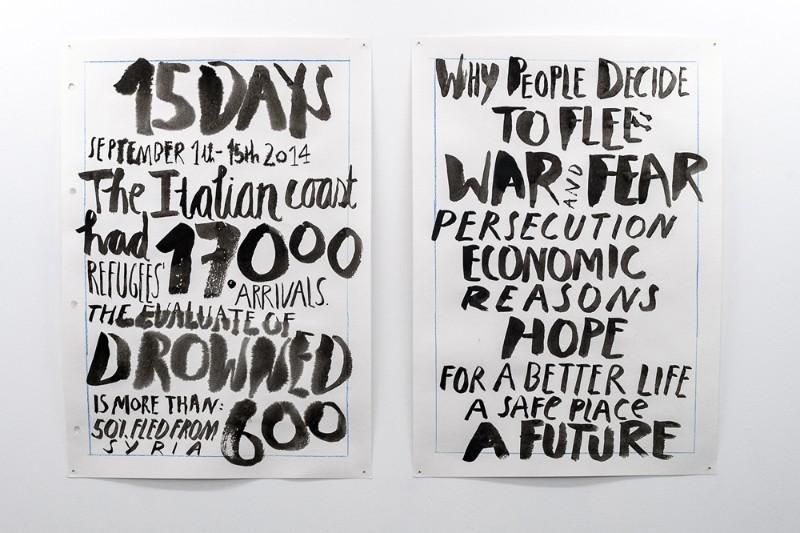 15 DAYS
SEPTEMBER 1st - 15th 2014
The Italian coast
had 17.000
REFUGEES' ARRIVALS.
THE EVALUATE OF
DROWNED
IS MORE THAN:
600
50%. FLED FROM
SYRIA
WHY PEOPLE DECIDE
TO FLEE:
WAR AND FEAR
PERSECUTION
ECONOMIC
REASONS
HOPE
FOR A BETTER LIFE
A SAFE PLACE
A FUTURE